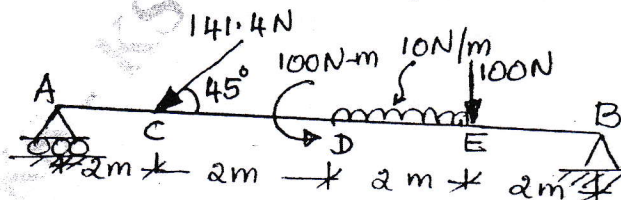 141.4N
100N-m
10N/m
100N
45°
A
C
D
E
B
2m
2m
2m
2m